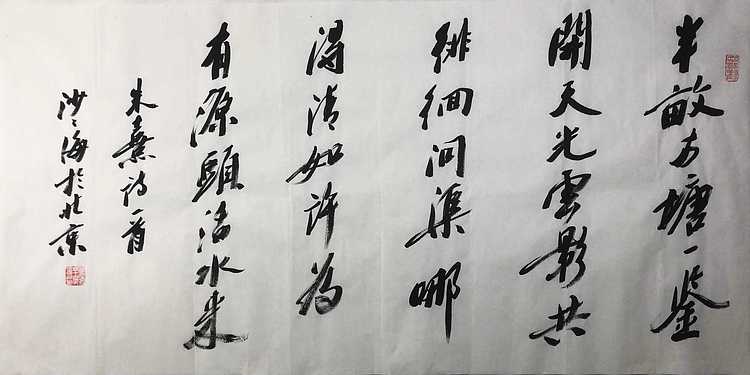 半畝方塘一鉴
開天光雲影共
徘徊问渠哪
得清如许為
有源頭活水来
朱熹诗一首
沙海於北京